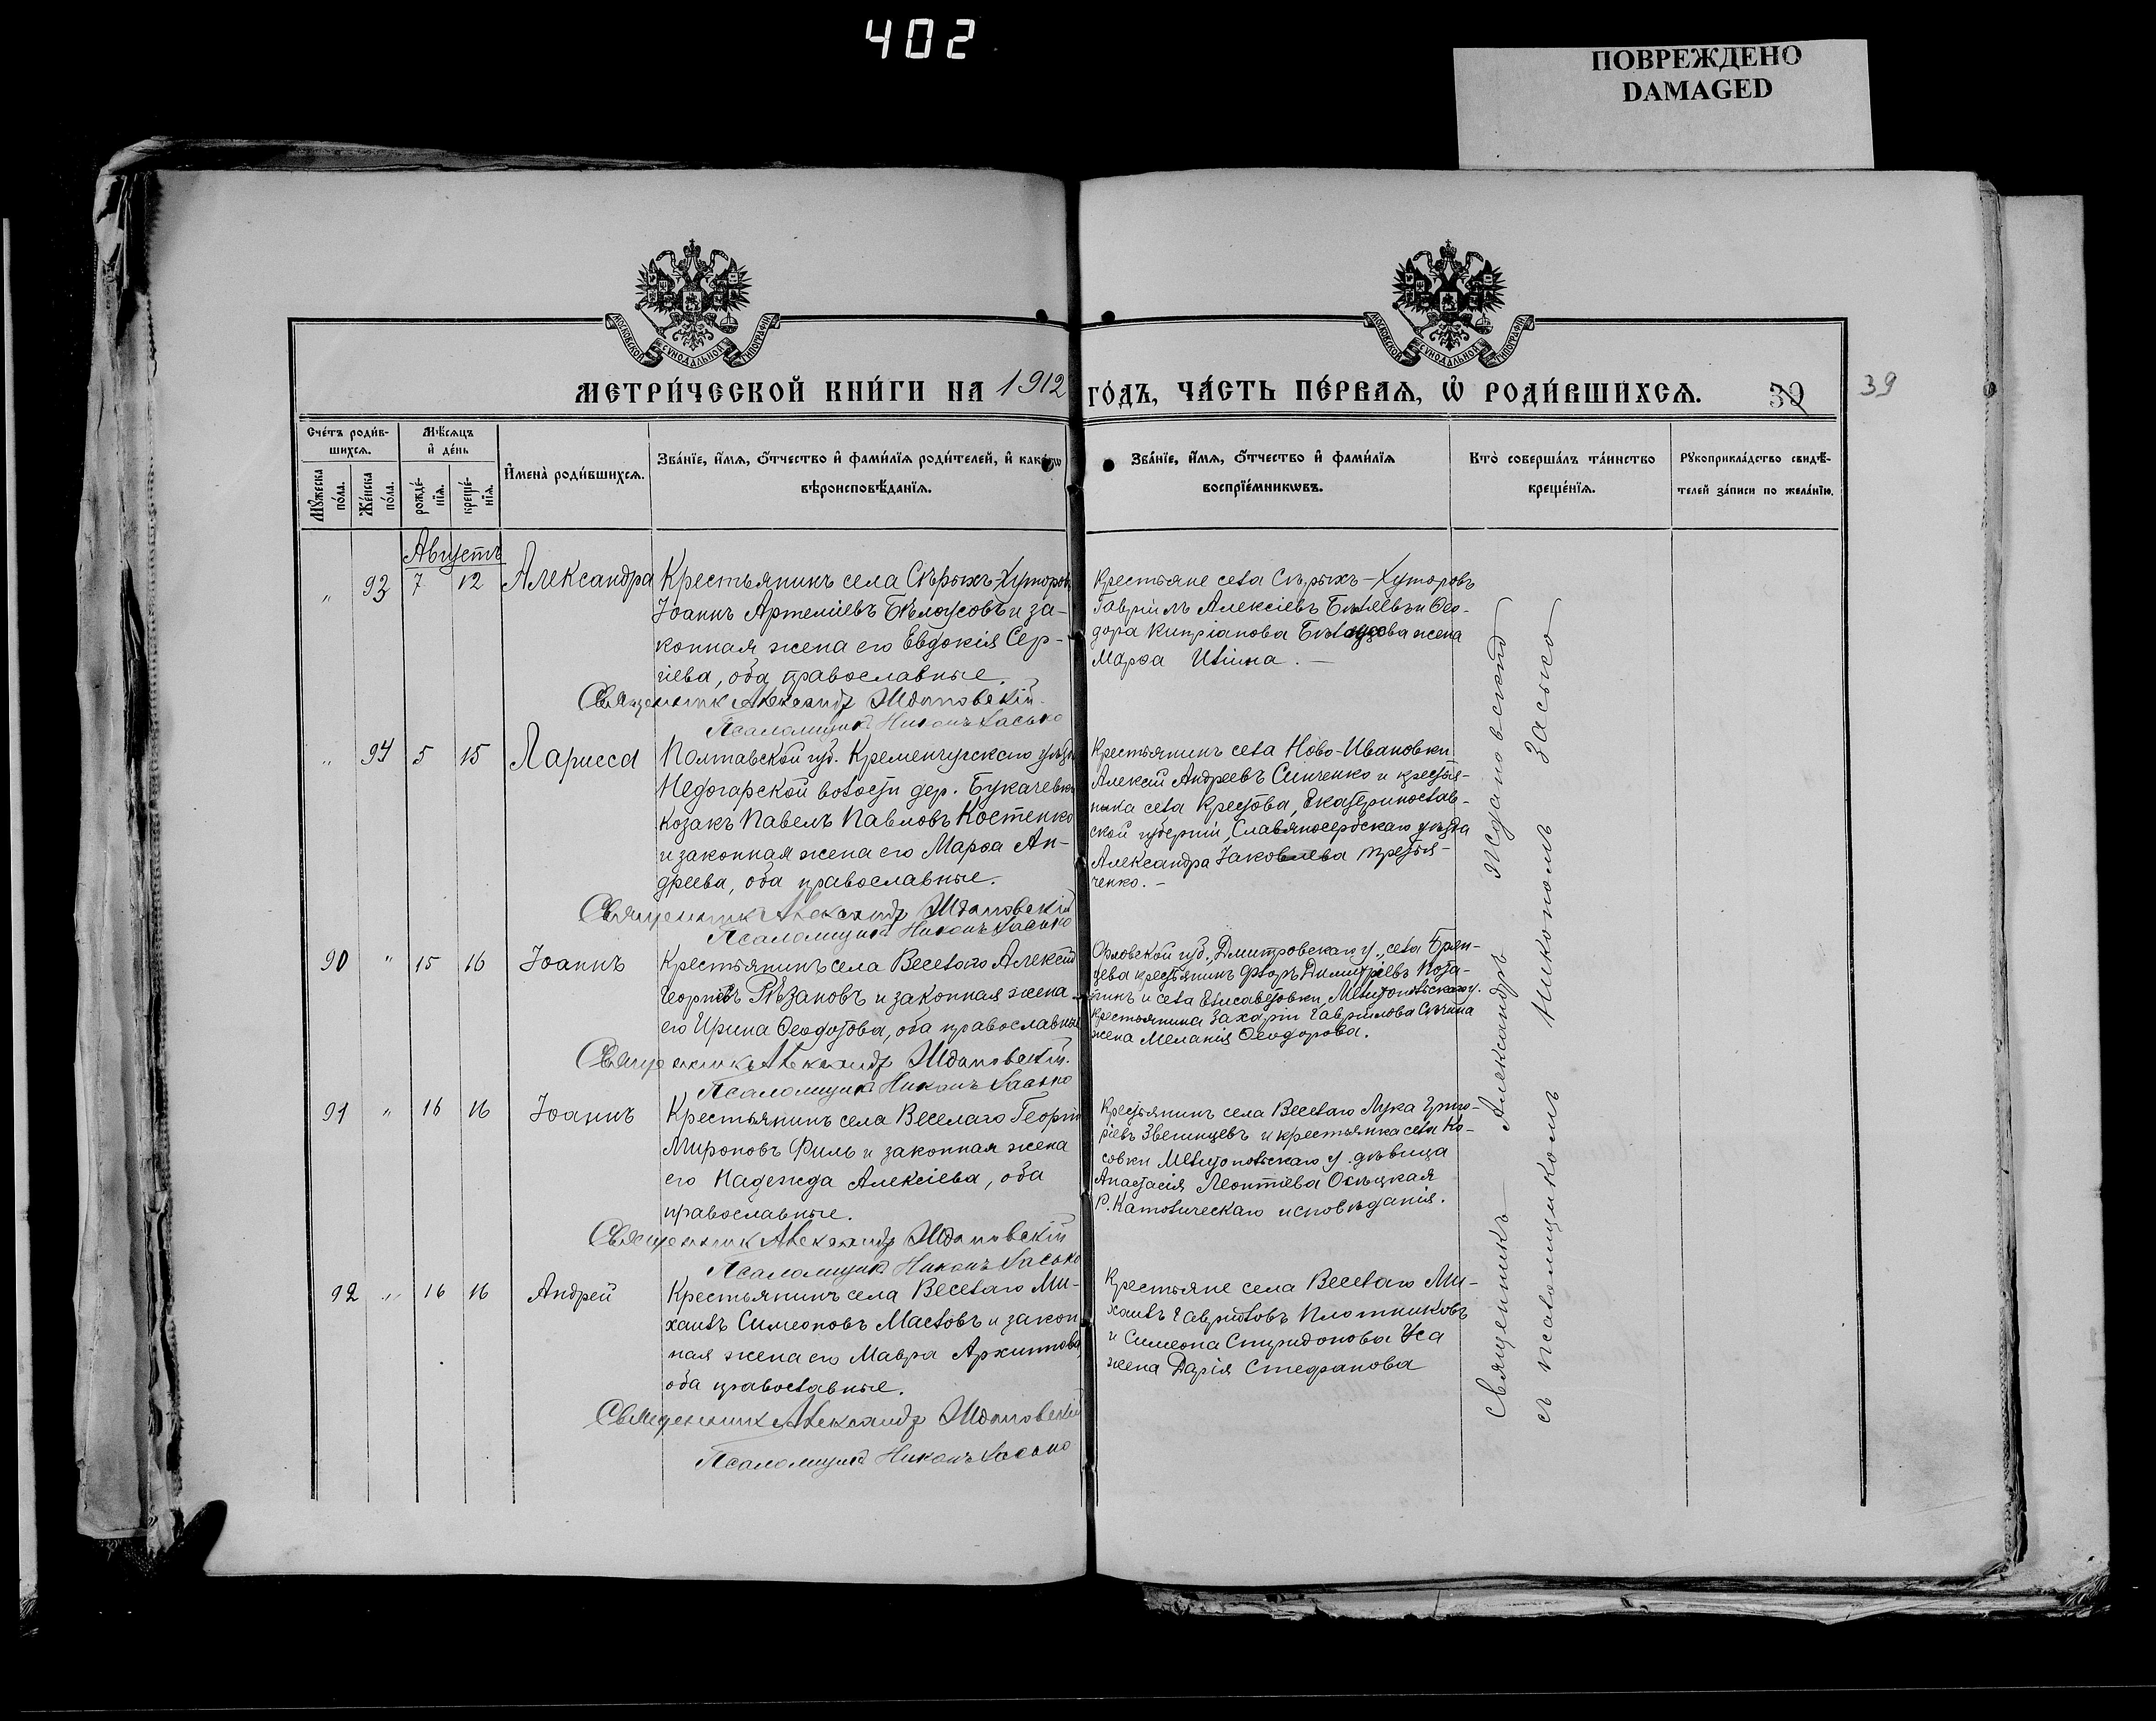 402
ПОВРЕЖДЕНО
DAMAGED
МОСКОВСКОЙ СѴНОДАЛЬНОЙ ТИПОГРАФІИ
МОСКОВСКОЙ СѴНОДАЛЬНОЙ ТИПОГРАФІИ
МЕТРИ́ЧЕСКОЙ КНИ́ГИ НА 1912 ГО́ДЪ, ЧА́СТЬ ПЕ́РВАѦ, Ѡ҆ РОДИ́ВШИХСѦ. 39
39
Сче́тъ роди́в-
шихсѧ.
Мѣ́сѧцъ
и҆ де́нь
Мꙋ́жеска
по́ла.
Же́нска
по́ла.
рожде́-
нїѧ.
креще́-
нїѧ.
И҆мена̀ роди́вшихсѧ.
Зва́нїе, и҆́мѧ, ѻ҆́тчество и҆ фами́лїѧ роди́телей, и҆ како́гѡ
вѣроисповѣ́данїѧ.
Зва́нїе, и҆́мѧ, ѻ҆́тчество и҆ фами́лїѧ
воспрїе́мникѡвъ.
Кто̀ соверша́лъ та́инство
креще́нїѧ.
Рꙋкоприкла́дство свидѣ́-
телей за́писи по жела́нїю.
Августъ
" 93 7 12 Александра
Крестьянинъ села Сѣрыхъ-Хуторовъ
Іоаннъ Артеміевъ Бѣлоусовъ и за-
конная жена его Евдокія Сер-
гіева, оба православные.
Священник Александр Ждановскій.
Псаломщикъ Никонъ Засько
Крестьяне села Сѣрыхъ-Хуторовъ
Гавріилъ Алексіевъ Бѣляевъ и Ѳео-
дора Кипріанова жена
Марѳа Иліина. —
" 94 5 15 Ларисса
Полтавской губ. Кременчугскаго уѣзда
Недогарской волости дер. Букачевки
козакъ Павелъ Павловъ Костенко
и законная жена его Марѳа Ан-
дреева, оба православные.
Священник Александр Ждановскій
Псаломщикъ Никонъ Засько
Крестьянинъ села Ново-Ивановки
Алексій Андреевъ Синченко и крестья-
нина села Крестова, Екатеринослав-
ской губерніи, Славяносербскаго уѣзда
Александра Іаковлева
ченко. —
90 " 15 16 Іоаннъ
Крестьянинъ села Веселаго Алексій
Георгіевъ Рѣзановъ и законная жена
его Ирина Ѳеодотова, оба православные
Священникъ Александр Ждановскій.
Псаломщикъ Никонъ Засько
Орловской губ., Дмитровскаго у., села Брян-
цева крестьянинъ Ѳеодоръ Димитріевъ Пота-
пинъ и села Елисаветовки, Мелитопольскаго у.
крестьянина Захаріи Гавриілова
жена Меланія Ѳеодорова.
91 " 16 16 Іоаннъ
Крестьянинъ села Веселаго Георгій
Мироновъ Филь и законная жена
его Надежда Алексіева, оба
православные.
Священник Александр Ждановскій
Псаломщикъ Никонъ Засько
Крестьянинъ села Веселаго Лука Григо-
ріевъ Звегинцевъ и крестьянка села Ко-
совки Мелитопольскаго у. дѣвица
Анастасія Леонтіева Осѣцкая
Р. Католическаго исповѣданія.
92 " 16 16 Андрей
Крестьянинъ села Веселаго Ми-
хаилъ Симеоновъ Масловъ и закон
ная жена его Мавра Архиппова,
оба православные.
Священник Александр Ждановскій
Псаломщикъ Никонъ Засько
Крестьяне села Веселаго Ми-
хаилъ Гавриловъ Плотниковъ
и Симеона Спиридонова Уса
жена Дарія Стефанова
Священникъ Александръ Ждановскій
съ псаломщикомъ Никономъ Засько